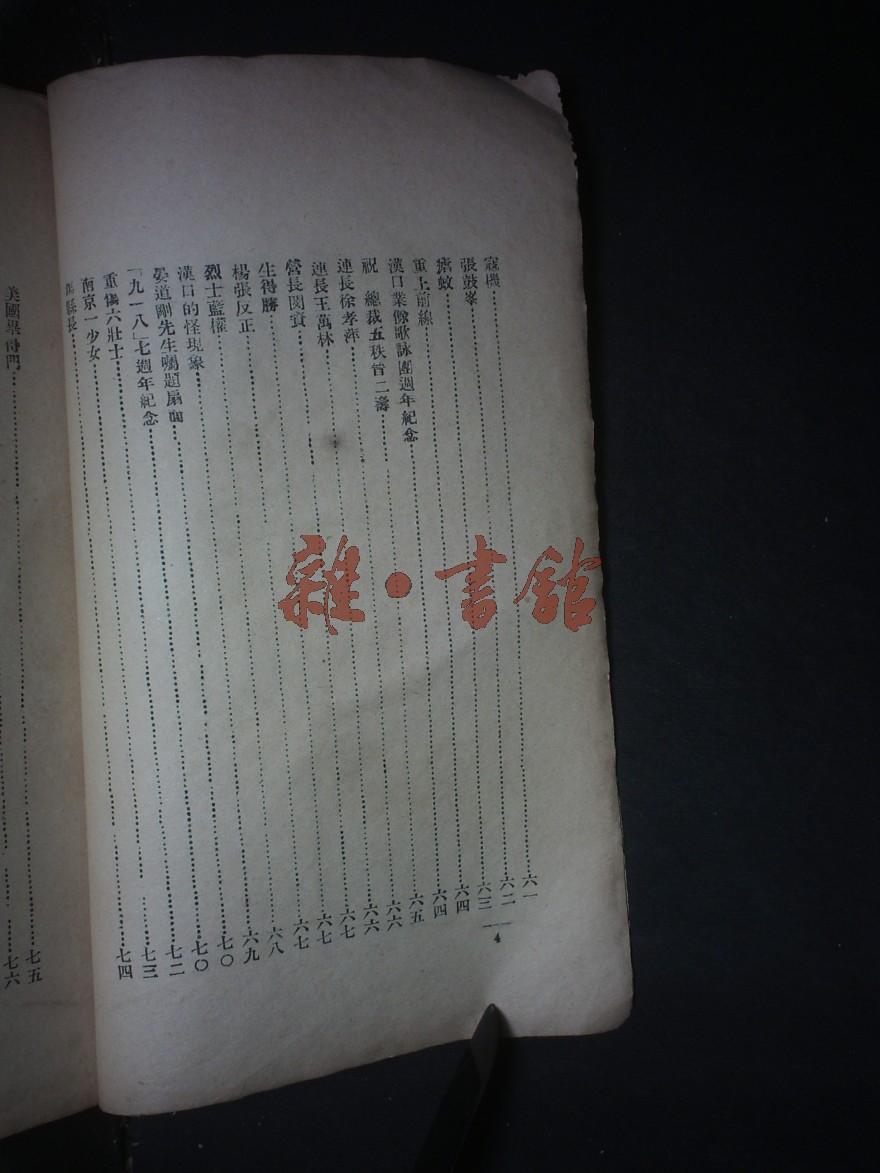 寇機……六一
張鼓峯……六二
瘧蚊……六三
重上前線……六四
漢口業餘歌詠團週年紀念……六四
祝　總裁五秩晉二壽……六五
連長徐孝萍……六六
連長王萬林……六六
營長閔賓……六七
生得勝……六七
楊張反正……六七
烈士藍權……六八
漢口的怪現象……六九
晏道剛先生囑題扇面……七〇
「九一八」七週年紀念……七〇
重儁六壯士……七二
南京一少女……七三
縣長……七四
4
……七五
美國畢得門……七六
雜·書館